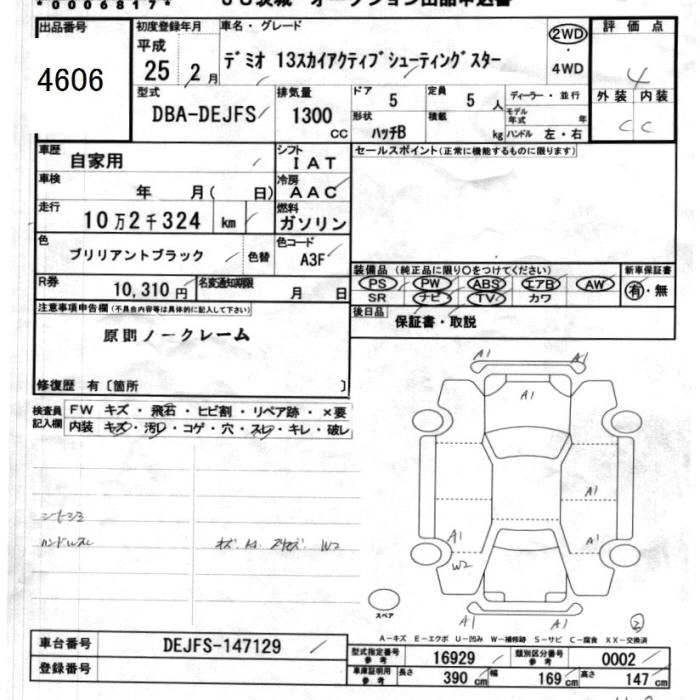 *0006817*
オークション出品申込書
出品番号
4606
初度登録年月
平成
25 2月
車名・グレード
デミオ 13スカイアクティブシューティングスター
2WD
・
4WD
評価点
4
外装 内装
C C
型式
DBA-DEJFS
排気量
1300
CC
ドア
5
定員
5 人
形状
ハッチB
積載
kg
ディーラー・並行
モデル年式 年
ハンドル 左・右
車歴
自家用
シフト
IAT
セールスポイント(正常に機能するものに限ります)
車検
年 月( 日)
冷房
AAC
走行
10万2千324 km
燃料
ガソリン
色
ブリリアントブラック
色替
色コード
A3F
装備品 (純正品に限り○をつけてください)
PS PW ABS エアB AW
SR ナビ TV カワ
新車保証書
有・無
R券
10,310円
名変通知期限
月 日
後日品
保証書・取説
注意事項申告欄(不具合内容等は具体的に記入して下さい)
原則ノークレーム
修復歴 有〔箇所 〕
検査員記入欄
FW キズ・飛石・ヒビ割・リペア跡・×要
内装 キズ・汚レ・コゲ・穴・スレ・キレ・破レ
ハンドルスレ
W2
A1 A1
A1
A1
A1
W2
A1
A1 A1
スペア
②
A－キズ E－エクボ U－凹み W－補修跡 S－サビ C－腐食 XX－交換済
車台番号
DEJFS-147129
登録番号
型式指定番号
参考
16929
類別区分番号
参考
0002
車庫証明用
参考
長さ 390 cm 幅 169 cm 高さ 147 cm